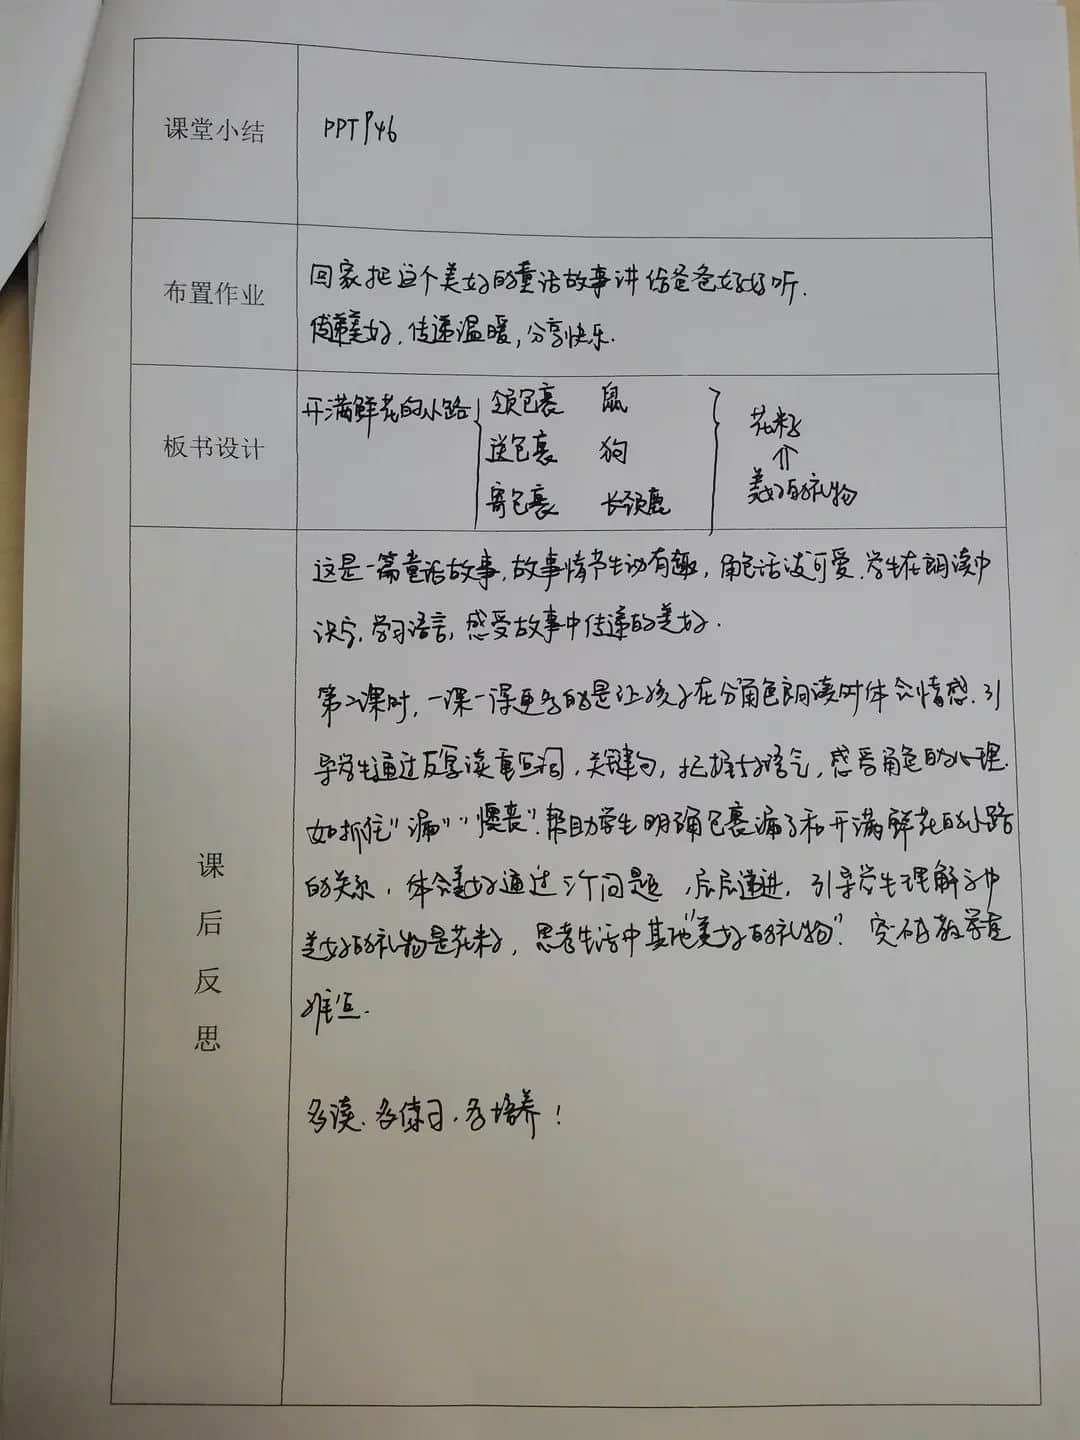 课堂小结 PPT P46
布置作业
回家把这个美好的童话故事讲给爸爸妈妈听.
传递美好, 传递温暖, 分享快乐.
板书设计
开满鲜花的小路 领包裹 鼠
送包裹 狗
寄包裹 长颈鹿
花籽
⇑
美好的礼物
课后反思
这是一篇童话故事, 故事情节生动有趣, 角色活泼可爱. 学生在朗读中
识字, 学习语言, 感受故事中传递的美好.
第二课时, 一课一课更多的是让孩子在分角色朗读时体会情感. 引
导学生通过反复读重点词, 关键句, 把握好语气, 感受角色的心理.
如抓住"漏""懊丧". 帮助学生明确包裹漏了和开满鲜花的小路
的关系, 体会美好通过三个问题, 层层递进, 引导学生理解文中
美好的礼物是花籽, 思考生活中其他"美好的礼物". 突破教学重
难点.
多读. 多练习. 多培养!